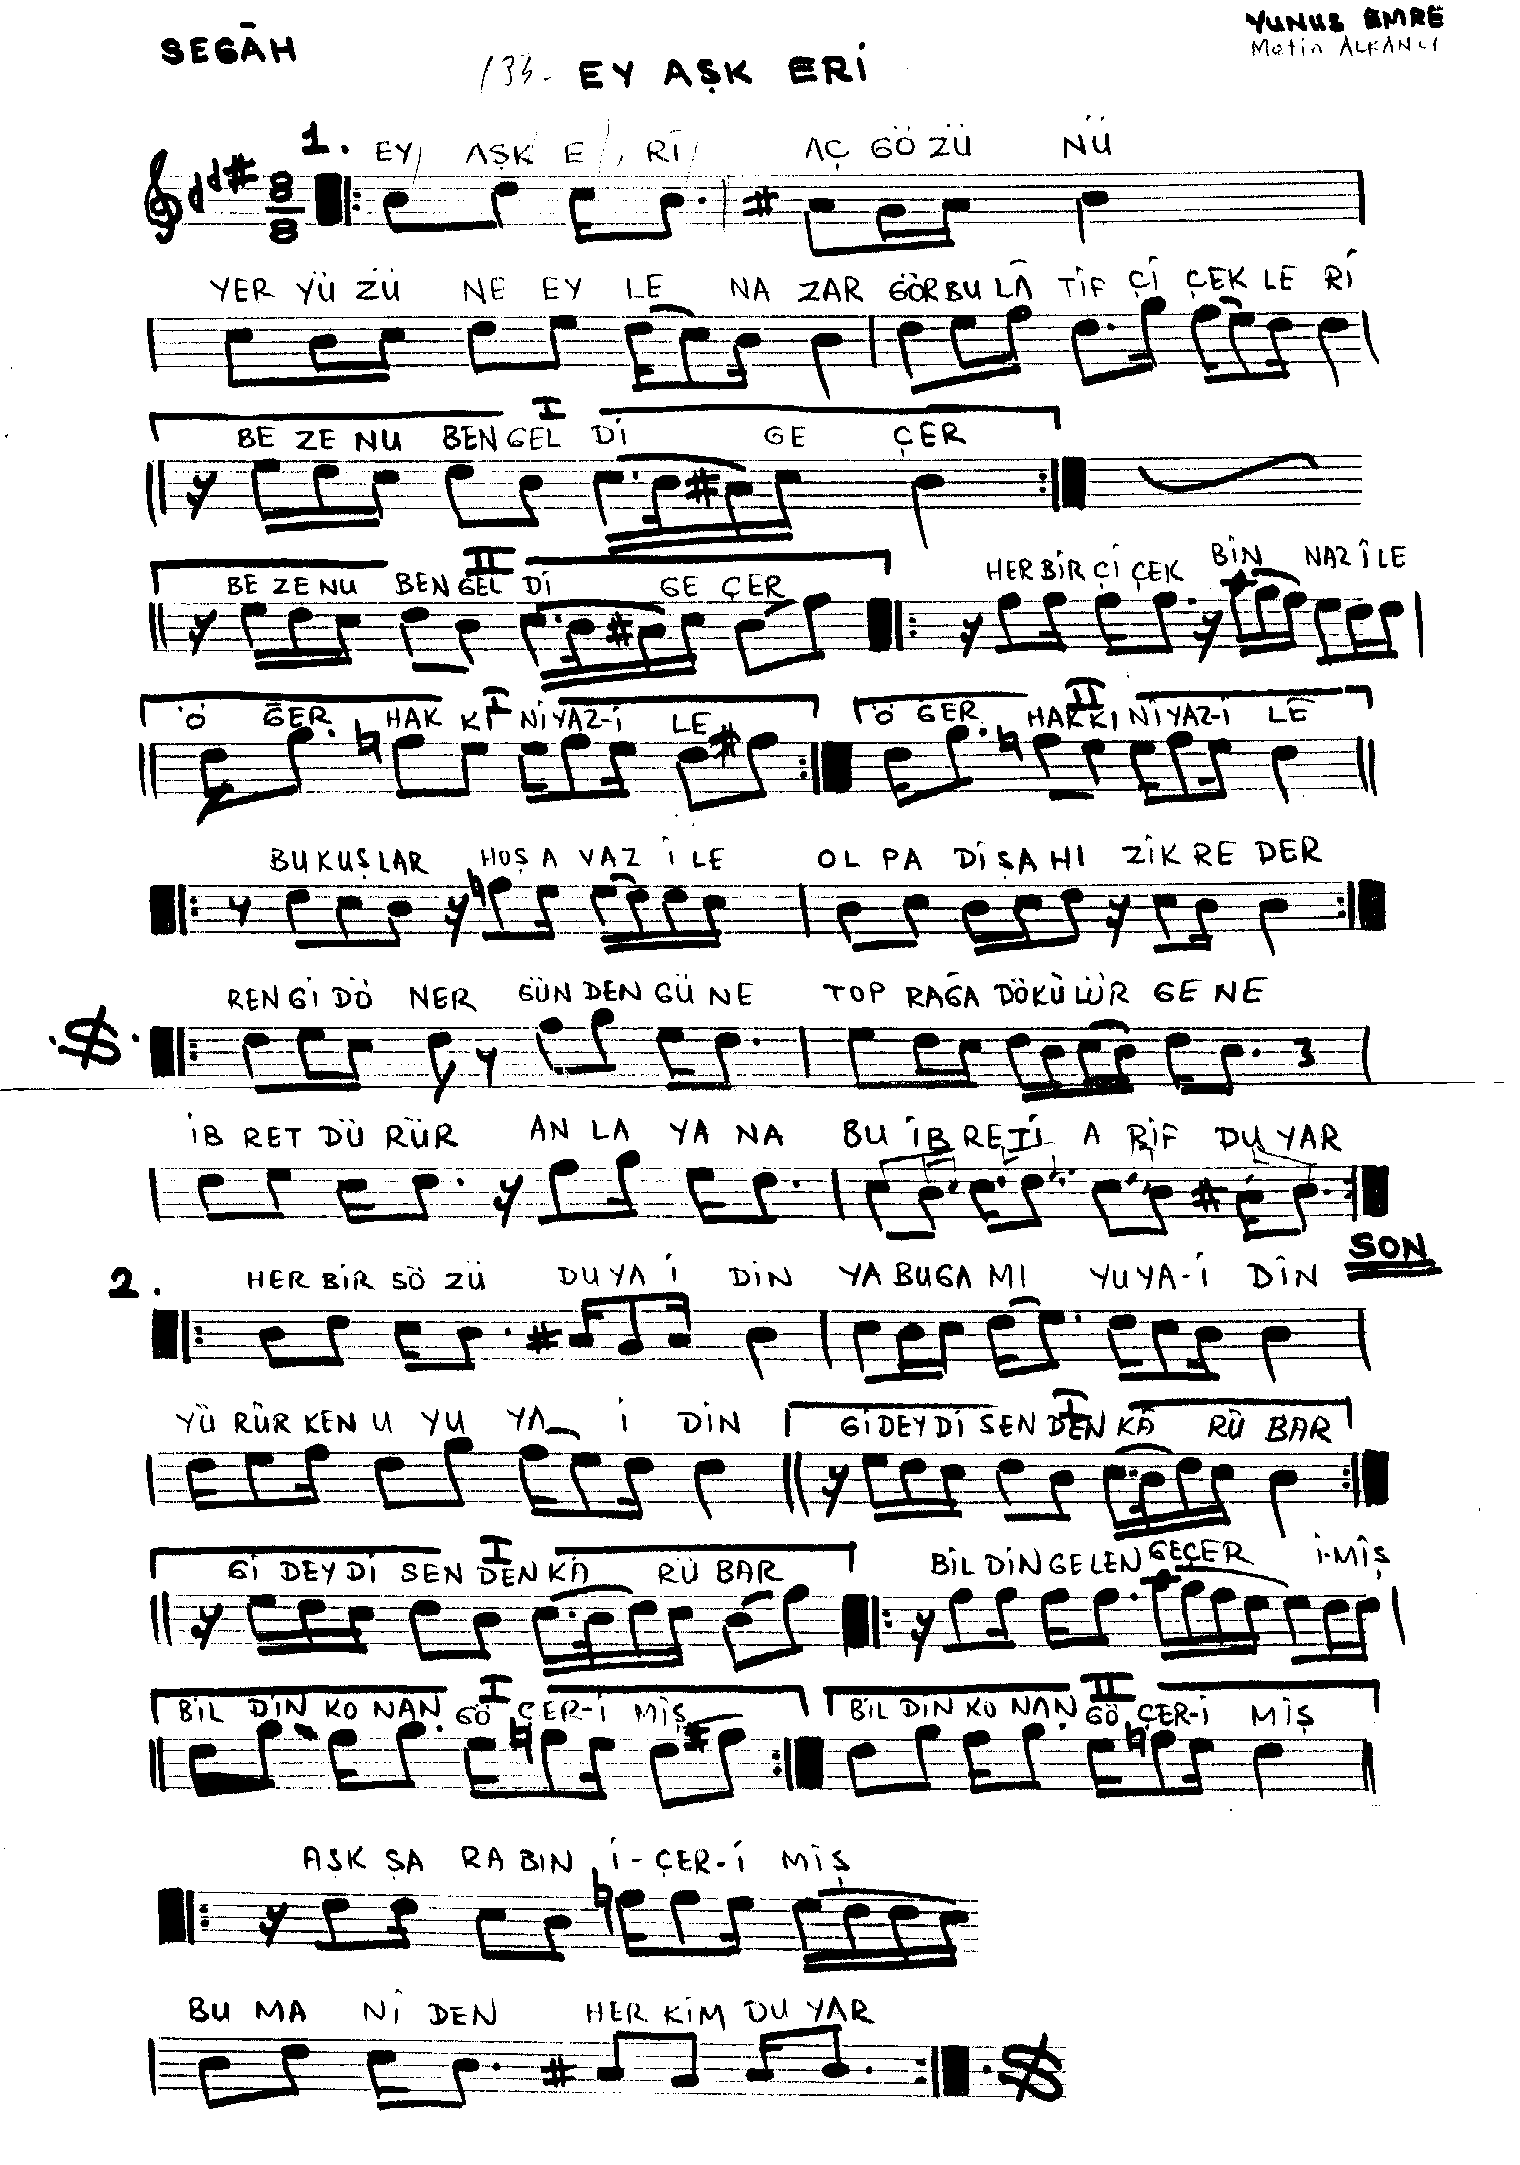 SEGÂH
YUNUS EMRE
Metin ALKANLI
133- EY AŞK ERİ
1. EY AŞK E Rİ AÇ GÖ ZÜ NÜ
8
8
YER YÜ ZÜ NE EY LE NA ZAR GÖR BU LÂ TİF Çİ ÇEK LE Rİ
I
BE ZE NU BEN GEL Dİ GE ÇER
II
BE ZE NU BEN GEL Dİ GE ÇER HER BİR Çİ ÇEK BİN NAZ İ LE
I II
Ö ĞER HAK KI NİYAZ-İ LE Ö GER HAK KI NİYAZ-İ LE
BU KUŞLAR HOŞ A VAZ İ LE OL PA DİŞA HI ZİK RE DER
REN Gİ DÖ NER GÜN DEN GÜ NE TOP RAĞA DÖKÜLÜR GE NE
İB RET DÜ RÜR AN LA YA NA BU İB RE Tİ A RİF DU YAR
SON
2. HER BİR SÖ ZÜ DU YA İ DİN YA BU GA MI YU YA-İ DİN
YÜ RÜR KEN U YU YA İ DİN I Gİ DEY Dİ SEN DEN KÂ RÜ BAR
I
Gİ DEY Dİ SEN DEN KÂ RÜ BAR BİL DİN GE LEN GEÇER İ-MİŞ
I II
BİL DİN KO NAN GÖ ÇER-İ MİŞ BİL DİN KO NAN GÖ ÇER-İ MİŞ
AŞK ŞA RA BIN İ-ÇER-İ MİŞ
BU MA NÎ DEN HER KİM DU YAR